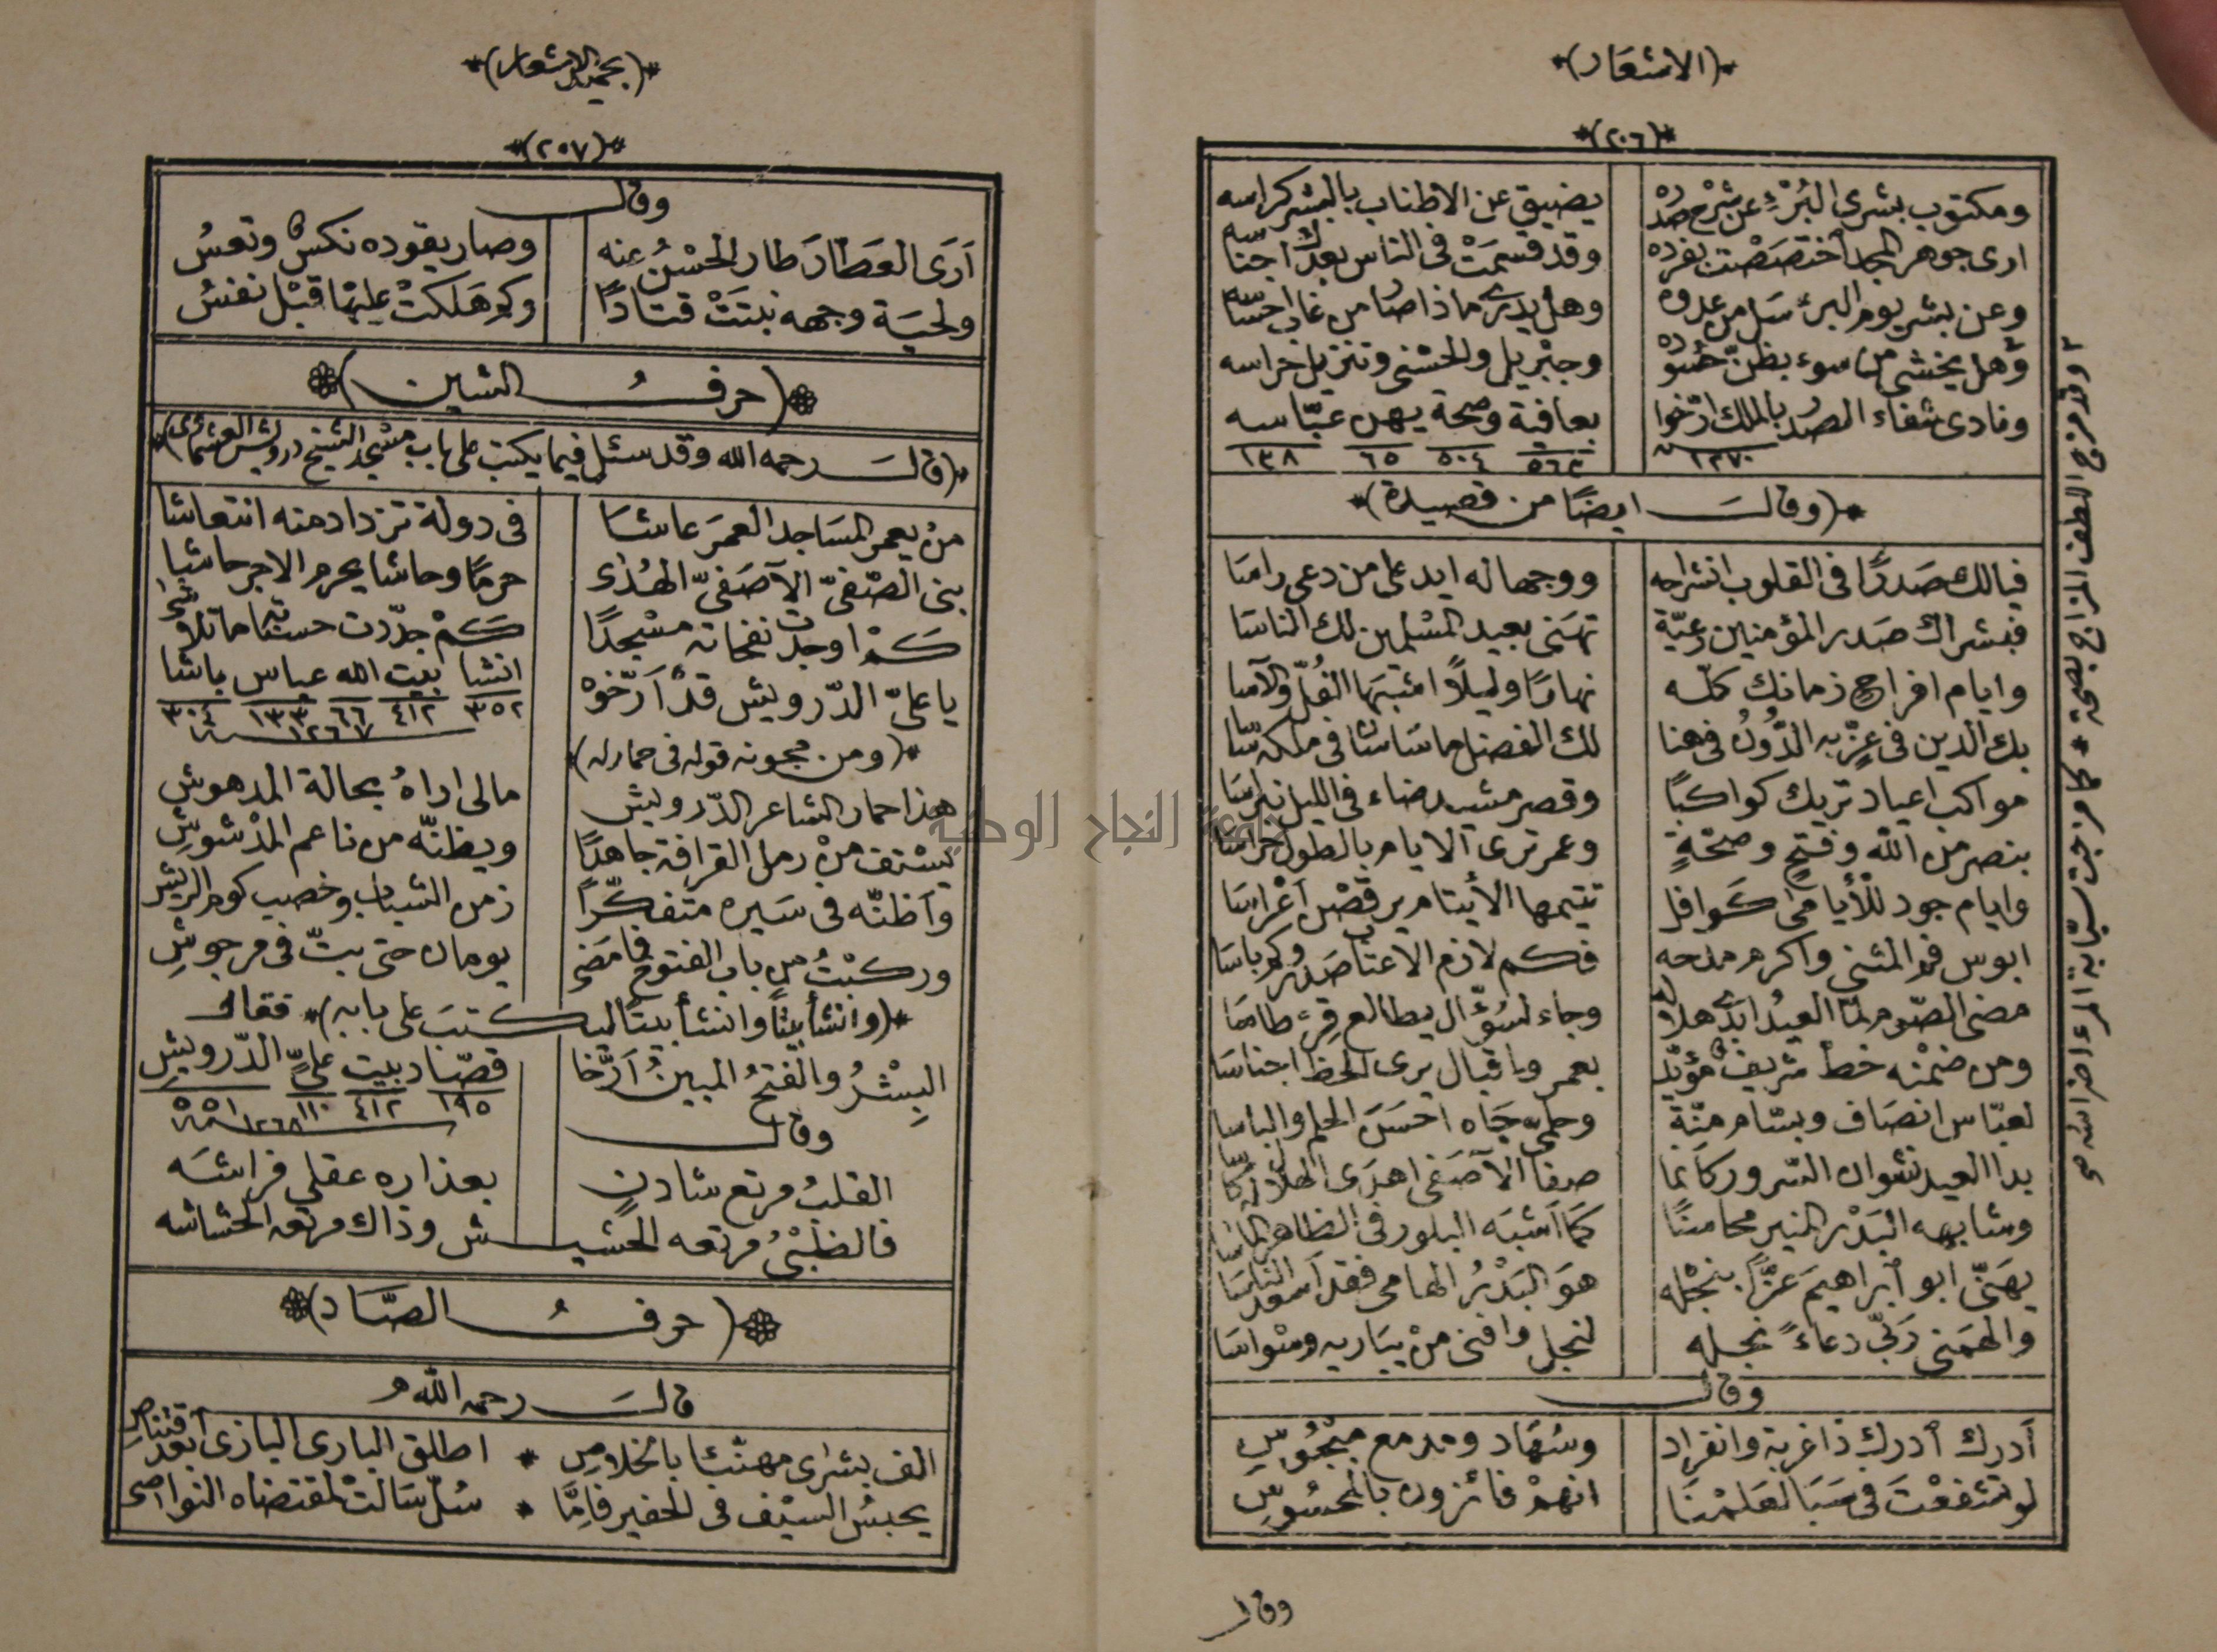 *(الاشعار)*
*(٢٠٦)*
ومكتوب بشرى البُرْءِ عن شرح صدْره يضيق عن الاطناب بالبشر كراسه
ارى جوهر المجد اختصَصْت بفرده وقد قسمَتْ فى الناس بعدك اجناسه
وعن بشر يوم البرء سل من عدوه وهل يدرى ماذا صار من غاب احساسه
وهل يخشى من سوء بظنّ حُسوده وجبْريل والحسْنى وتنزيل حراسه
ونادى شفاء الصدر بالملك ارّخوا بعافية وصحة يهن عبّاسه
١٢٧٠ ٥٦٣ ٥٠٤ ٦٥ ١٣٨
*(وقال ايضًا من قصيدة)*
فيالك صَدرًا فى القلوب انشراحه ووجها له ايد على من دعى راسَا
فبشراك صَدر المؤمنين رعيّة تهنى بعيد المسْلمين لك الناسَا
وايام افراح زمانك كلّه نهارًا وليلاً اشبهَا الفُلّ والآسا
بك الدين فى عِزّ به الدُّوَلُ فى هنا لك الفضل ما سَاسَا فى ملكه
مواكب اعياد تريك كواكبًا وقصر مشيد ضاء فى الليل نبراسَا
بنصر من اللّه وفتحٍ وصحّةٍ وعمر ترى الايام بالطول حراسَا
وايام جود للأيامى كوافل تتيمها الأيتام يرقصْن اعْراسَا
ابوس فم المثنى واكرم مدحه فكم لازم الاعتاب صَدْر وكم باسَا
مضى الصّوم لمّا العيدُ ابدى هلاله وجاء لسُؤّال يطالع قرء طاسَا
ومن ضمْنه خط شريف مؤيّد بعمر واقبال يرى الحظ اجناسَا
لعبّاس انصَاف وبسّام منّة وحلمى جَاه احسَنَ الحلم والباسا
بدا العيد نشوان السّرور كانما صفا الآصَفى اهدَى الهلال له كاسَا
وشابهه البَدْر المنير محاسنًا كمَا آشبَه البلور فى الظاهر الماسَا
يهَنّى ابو ابْراهيمَ عزًّا بنجْله هوَ البَدْرُ الهامى فقد آسعد الناسَا
والهمَنى رَبّى دعاءً نجله لنجل وافنى منْ يبَاريه وسْواسَا
وقال
آدرك آدرك ذا غربة وانفراد وسُهَاد ومدمع مبْجُوسِ
لو تشفعْتَ فى سَبَا لعَلمْنَا انهمْ فائزون بالمحسُوسِ
وقال
٢ وقد مزج اللطف المزاج بصحة * كما مزجت بشرابه المرء اضراسه صح
*(بحميد الاشعار)*
*(٢٠٧)*
وقال
آرَى العَطّارَ طار الحسْنُ عنه وصار يقوده نكسٌ وتعسُ
ولحيَة وجهه نبتَتْ قتادًا وكم هَلكتْ عليهَا قبْل نفسُ
*(حرفُ الشين)*
*(قال رحمه الله وقد سئل فيما يكتب على باب مسْجد الشيخ درويش العشماوى)*
منْ يعمر المسَاجد العمرَ عاشَا فى دولة تزداد منه انتعاشا
بنى الصّفىّ الآصَفىّ الهُدَى حرمًا وحاشا يحرم الاجر حاشا
كَمْ اوجدت نفحاته مسْجدًا كَمْ جدّدت حسناته ما تلاشى
يا علىّ الدّرويش قدْ آرّخوْه انشا بيت الله عباس باشا
٣٥٢ ٤١٢ ٦٦ ١٣٣ ٣٠٤
سنة ١٢٦٧
*(ومن مجونه قوله فى حمار له)*
هذا حمار الشاعر الدّرويش مالى اراهُ بحالة المدهوشِ
يسْتف منْ رمل القرافة جاهدًا ويظنّه من ناعم المدْشوشِ
وآظنّه فى سَيره متفكّرًا زمن الشباب وخصب كوم الريش
وركبْتُ من باب الفتوح فامضَى يومان حتى بتّ فى مرجوشِ
*(وانشأ بيتًا وانشأ بيتًا ليكتبَ على بابه)* فقال
البِشْرُ والفتحُ المبينُ آرّخا قصّاد بيت علىّ الدّرويش
١٩٥ ٤١٢ ١١٠ ٥٥١
سنة ١٢٦٨
وقال
القلبُ مرتع شادنٍ بعذاره عقلى فراشَه
فالظبْىُ مرتعه الحشيش وذاك مرتعه الحشاشه
*(حرفُ الصّاد)*
قالَ رحمه اللّه
الف بشرى مهنّئا بالخلاصِ * اطلق البارى البازى آبعد اقتناصِ
يحبسُ السيْف فى الحفير فامَّا * سُلّ سَالتْ لمقتضاه النواصى
جامعة النجاح الوطنية